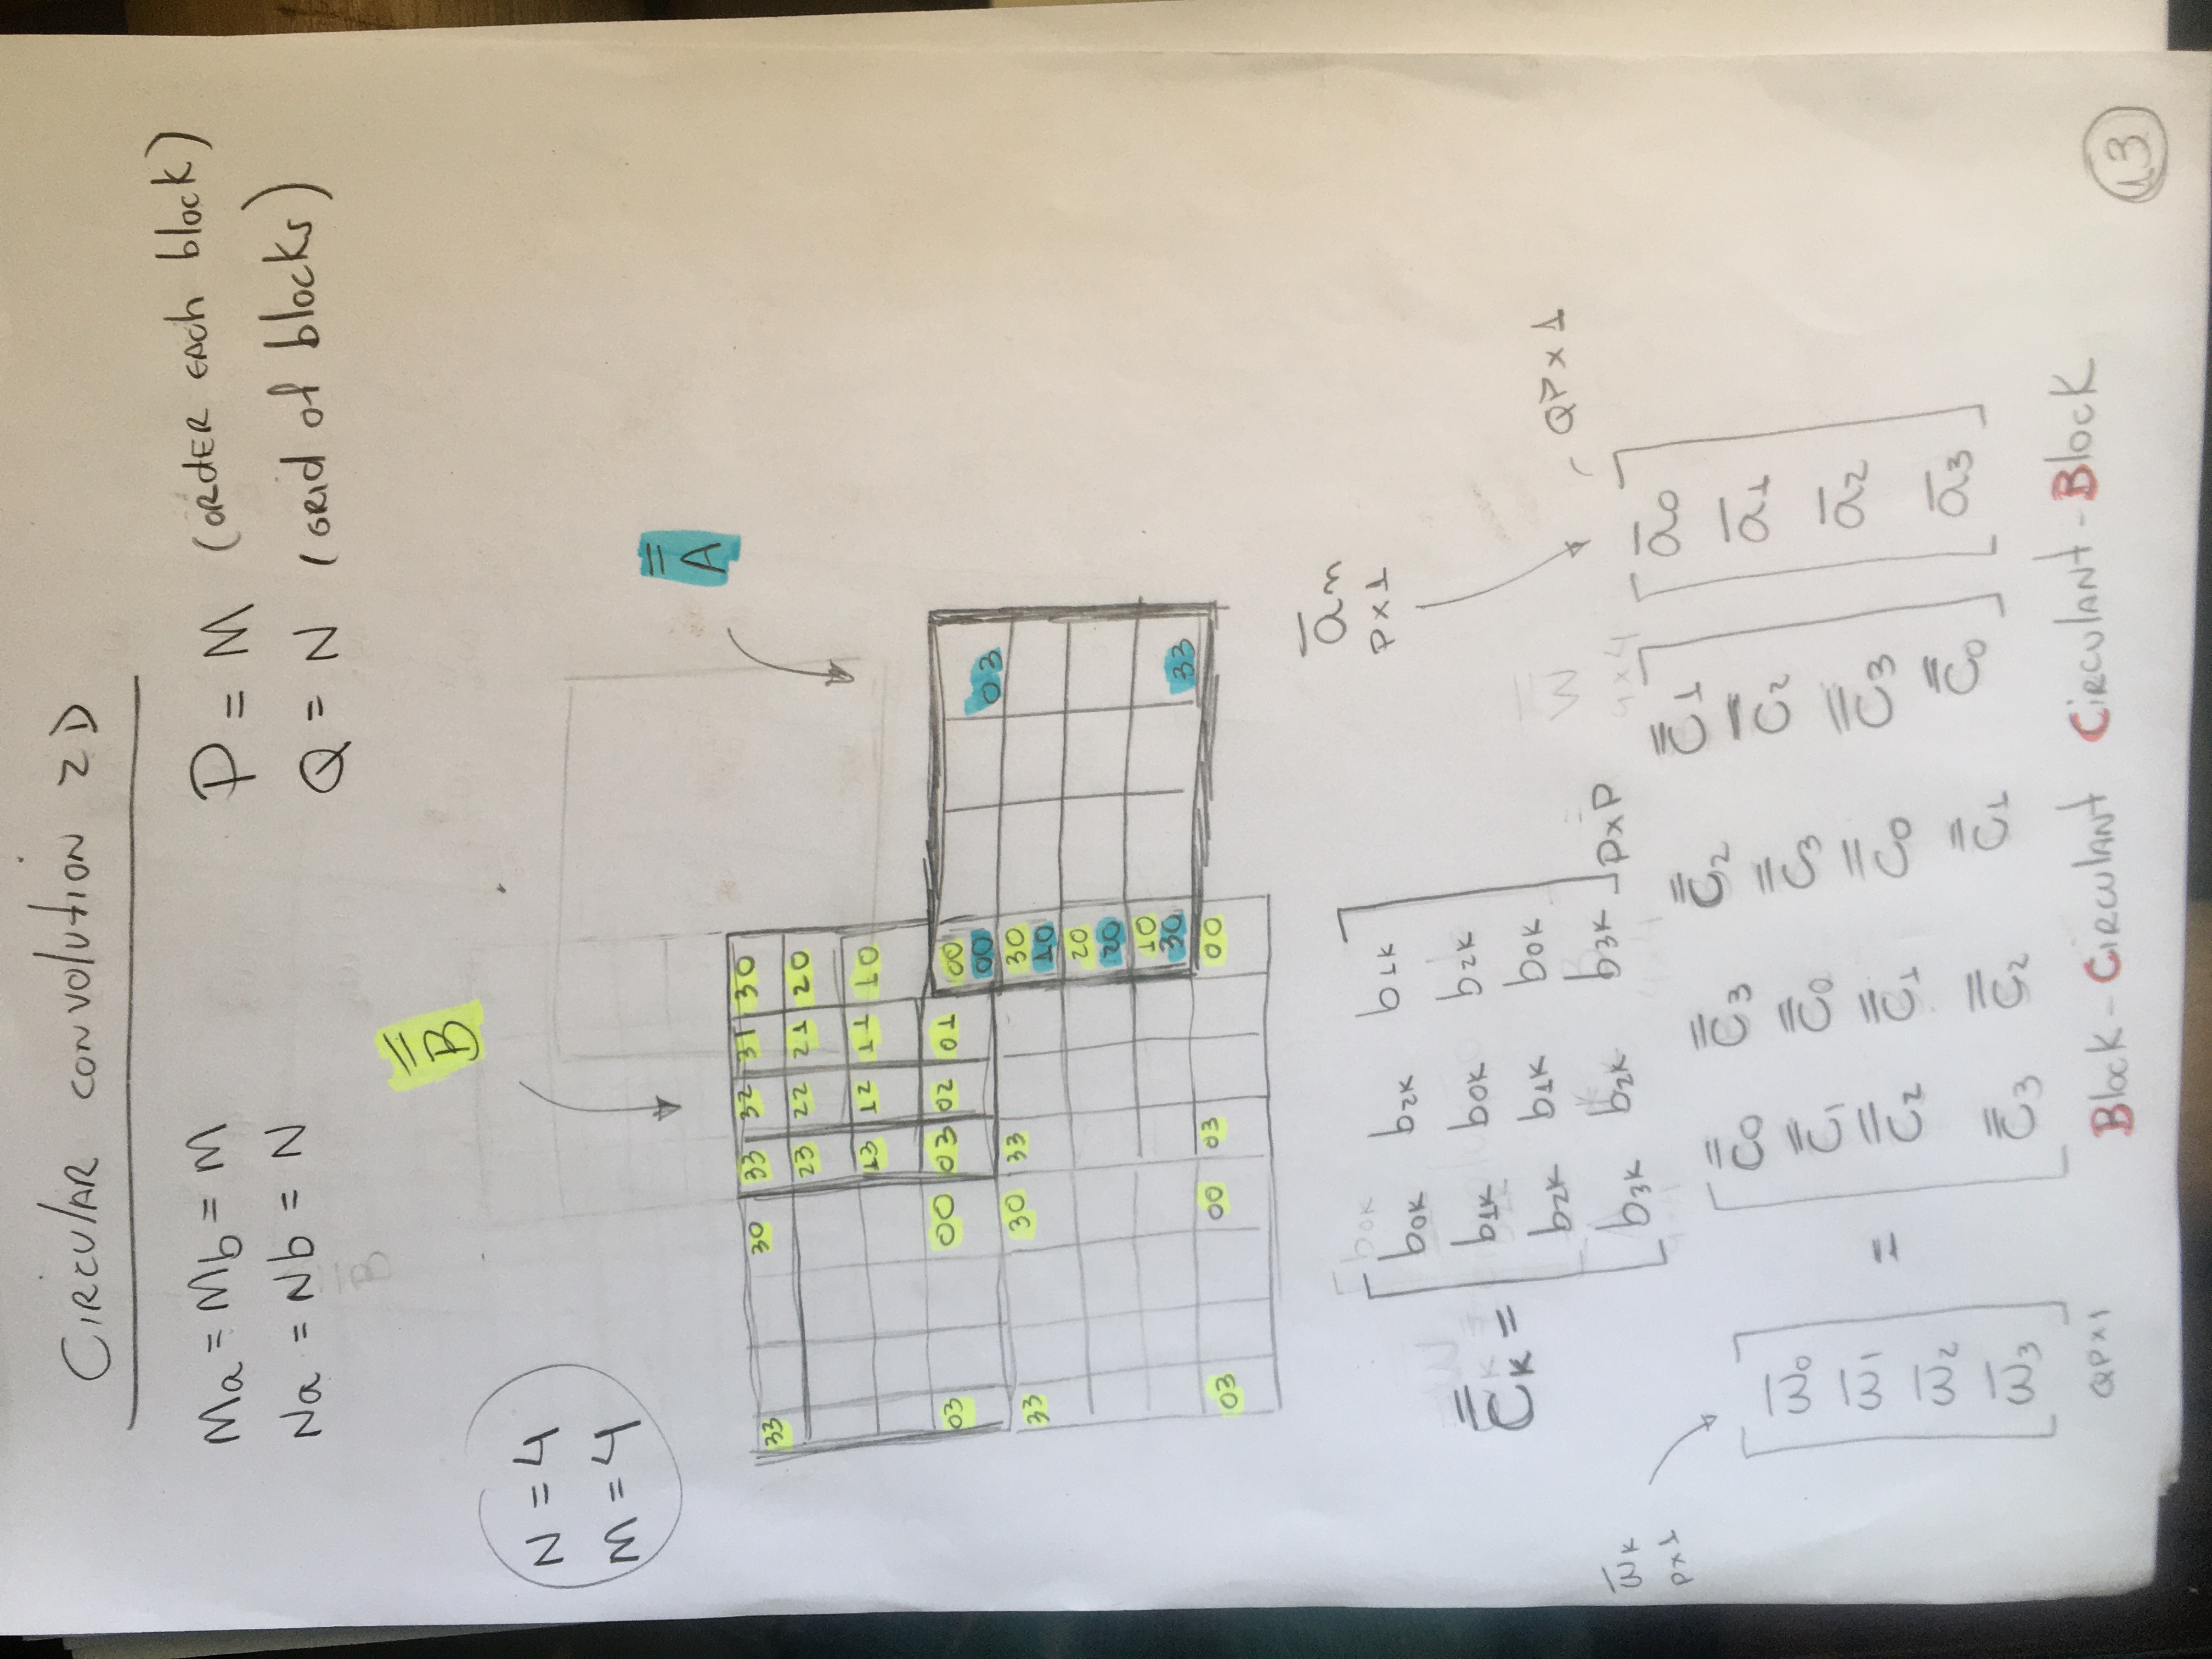 CIRCULAR CONVOLUTION 2D
Ma = Mb = M
Na = Nb = N
P = M (ORDER EACH block)
Q = N (GRID of blocks)
B
B
N = 4
M = 4
A
33 30 33 32 31 30
23 22 21 20
13 12 11 10
03 00 03 02 01 00
00 03
33 30 33 30
10
20
20
10
30 33
03 00 03 00
ān
P×1
C̿k = [ b0k b2k b1k
b1k b0k b2k
b2k b1k b0k
b3k b2k b3k ] P×P
QP×1
w̄k
P×1
[ w̄0 w̄1 w̄2 w̄3 ] QP×1
=
[ C̿0 C̿3 C̿2 C̿1
C̿1 C̿0 C̿3 C̿2
C̿2 C̿1 C̿0 C̿3
C̿3 C̿2 C̿1 C̿0 ]
[ ā0 ā1 ā2 ā3 ]
Block-CIRCULANT CIRCULANT-Block
13